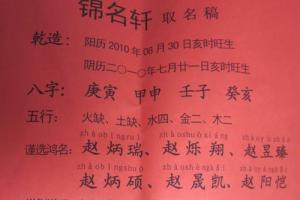 锦名轩 取名稿
乾造： 阳历 2010 年 08 月 30 日亥时旺生
阴历二〇一〇年七月廿一日亥时旺生
八字： 庚寅 甲申 壬子 癸亥
五行： 火缺、土缺、水四、金二、木二
zhàobǐngruì zhàoshuòxiáng
谨选鸿名： 赵炳瑞、赵烁翔、赵昱臻
zhàobǐngshuò zhàoshèngkǎi
赵炳硕、赵晟凯、赵阳恺